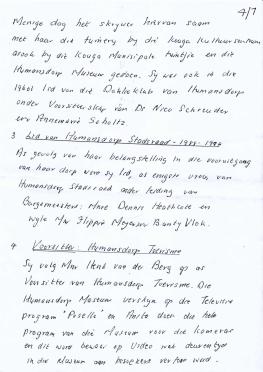 4/7
Menige dag het skrywer hiervan saam
met haar die tuinery by die Kouga Kultuursentrum
asook by die Kouga Munisipale tuintjie en die
Humansdorp Museum gedoen. Sy was ook in die
1960s lid van die Dahliaklub van Humansdorp
onder Voorsitterskap van Dr Nico Schreuder
en Annemarie Scholtz
3 Lid van Humansdorp Stadsraad - 1988-
As gevolg van haar belangstelling in die vooruitgang
van haar dorp word sy lid, as enigste vrou, van
Humansdorp Stadsraad onder leiding van
Burgemeesters: Mnre Dennis Heathcote en
wyle Mnr Flippie Meyer Bunty Vlok.
4 Voorsitter: Humansdorp Toerisme
Sy volg Mnr Henk van der Berg op as
Voorsitter van Humansdorp Toerisme. Die
Humansdorp Museum verskyn op die Televisie
program "Pasella" en doen die hele
program van die Museum voor die kameras
en dit word bewaar op Video wat deurentyd
in die Museum aan besoekers vertoon word.